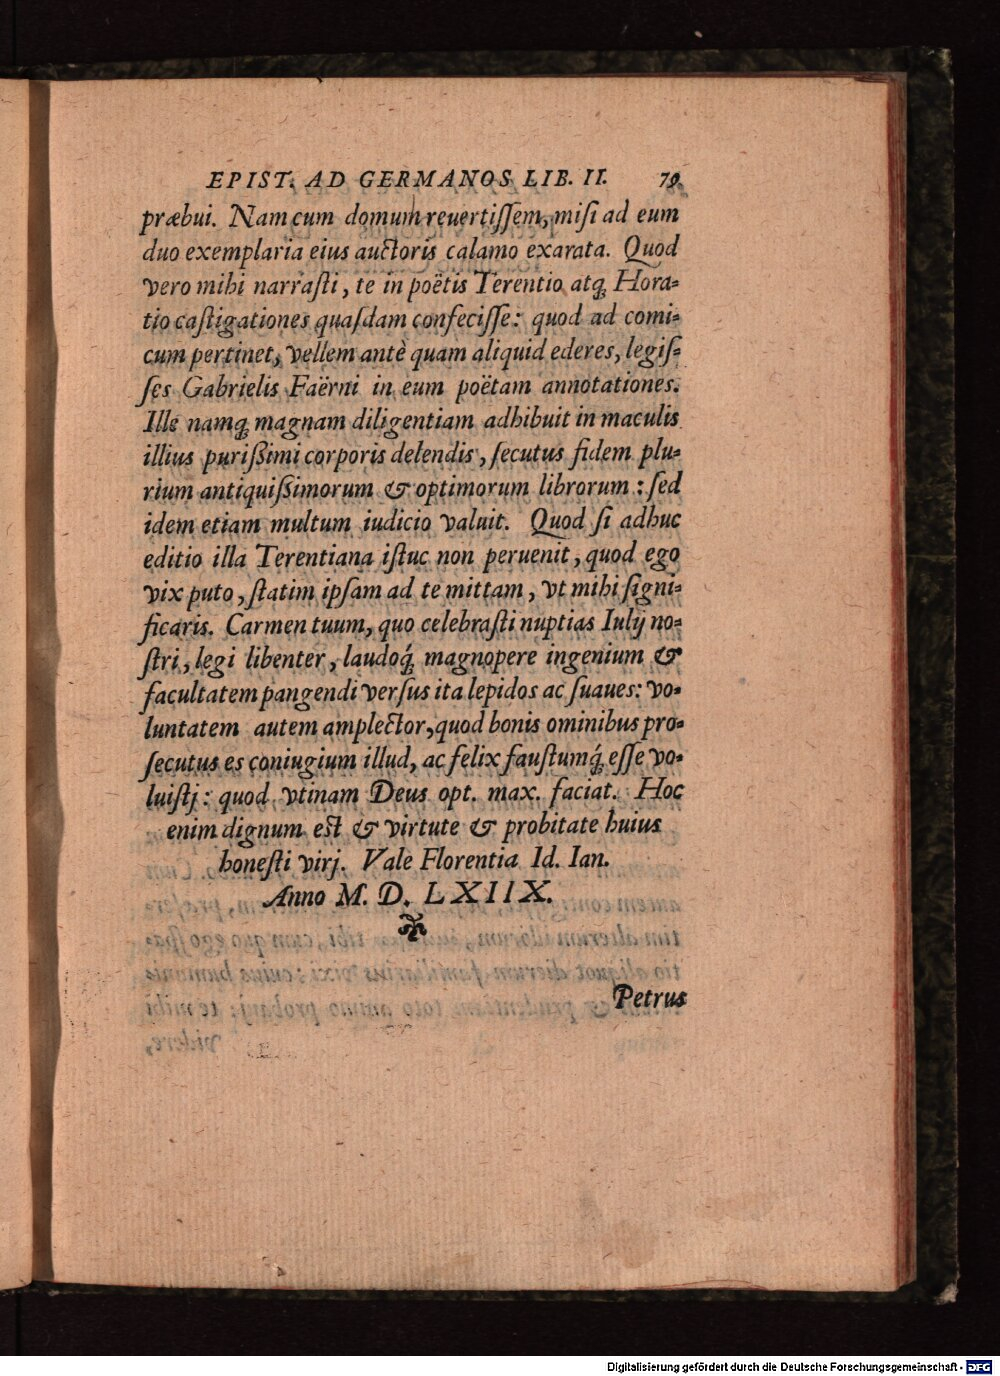 EPIST. AD GERMANOS LIB. II. 79.
præbui. Nam cum domum reuertiſſem, miſi ad eum
duo exemplaria eius auctoris calamo exarata. Quod
vero mihi narraſti, te in poëtis Terentio atq́; Hora-
tio caſtigationes quaſdam confeciſſe: quod ad comi-
cum pertinet, vellem antè quam aliquid ederes, legiſ-
ſes Gabrielis Faërni in eum poëtam annotationes.
Ille namq́; magnam diligentiam adhibuit in maculis
illius purißimi corporis delendis, ſecutus fidem plu-
rium antiquißimorum & optimorum librorum: ſed
idem etiam multum iudicio valuit. Quod ſi adhuc
editio illa Terentiana iſtuc non peruenit, quod ego
vix puto, ſtatim ipſam ad te mittam, vt mihi ſigni-
ficaris. Carmen tuum, quo celebraſti nuptias Iulij no-
ſtri, legi libenter, laudoq́; magnopere ingenium &
facultatem pangendi verſus ita lepidos ac ſuaues: vo-
luntatem autem amplector, quod bonis ominibus pro-
ſecutus es coniugium illud, ac felix fauſtumq́; eſſe vo-
luiſtj: quod vtinam Deus opt. max. faciat. Hoc
enim dignum est & virtute & probitate huius
honeſti virj. Vale Florentia Id. Ian.
Anno M. D. LXIIX.
Petrus
Digitalisierung gefördert durch die Deutsche Forschungsgemeinschaft - DFG